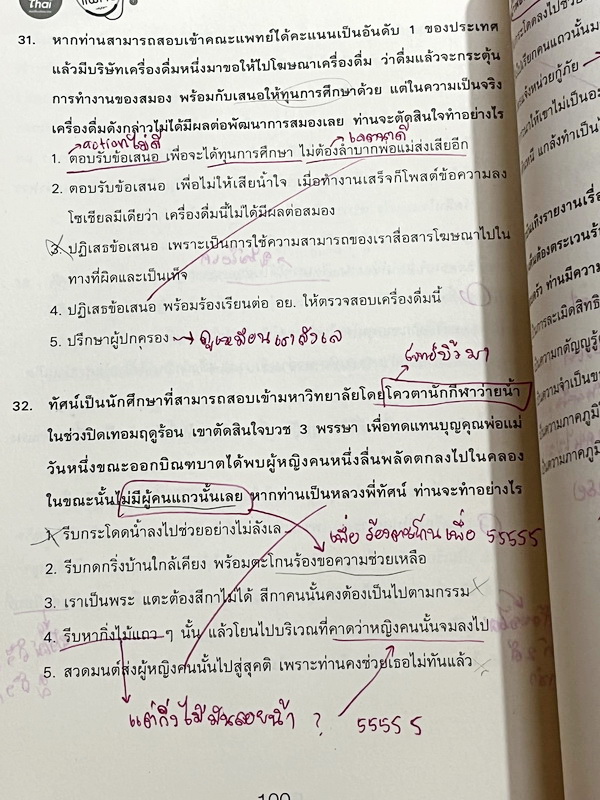 Thai
31. หากท่านสามารถสอบเข้าคณะแพทย์ได้คะแนนเป็นอันดับ 1 ของประเทศ
แล้วมีบริษัทเครื่องดื่มหนึ่งมาขอให้ไปโฆษณาเครื่องดื่ม ว่าดื่มแล้วจะกระตุ้น
การทำงานของสมอง พร้อมกับเสนอให้ทุนการศึกษาด้วย แต่ในความเป็นจริง
เครื่องดื่มดังกล่าวไม่ได้มีผลต่อพัฒนาการสมองเลย ท่านจะตัดสินใจทำอย่างไร
actionไม่ดี เจตนาดี
1. ตอบรับข้อเสนอ เพื่อจะได้ทุนการศึกษา ไม่ต้องลำบากพ่อแม่ส่งเสียอีก
2. ตอบรับข้อเสนอ เพื่อไม่ให้เสียน้ำใจ เมื่อทำงานเสร็จก็โพสต์ข้อความลง
โซเชียลมีเดียว่า เครื่องดื่มนี้ไม่ได้มีผลต่อสมอง
3. ปฏิเสธข้อเสนอ เพราะเป็นการใช้ความสามารถของเราสื่อสารโฆษณาไปใน
ทางที่ผิดและเป็นเท็จ
4. ปฏิเสธข้อเสนอ พร้อมร้องเรียนต่อ อย. ให้ตรวจสอบเครื่องดื่มนี้
5. ปรึกษาผู้ปกครอง → ดูเหมือนเราลังเล
32. ทัศน์เป็นนักศึกษาที่สามารถสอบเข้ามหาวิทยาลัยโดยโควตานักกีฬาว่ายน้ำ
ในช่วงปิดเทอมฤดูร้อน เขาตัดสินใจบวช 3 พรรษา เพื่อทดแทนบุญคุณพ่อแม่
วันหนึ่งขณะออกบิณฑบาตได้พบผู้หญิงคนหนึ่งลื่นพลัดตกลงไปในคลอง
ในขณะนั้นไม่มีผู้คนแถวนั้นเลย หากท่านเป็นหลวงพี่ทัศน์ ท่านจะทำอย่างไร
1. รีบกระโดดน้ำลงไปช่วยอย่างไม่ลังเล
55555
2. รีบกดกริ่งบ้านใกล้เคียง พร้อมตะโกนร้องขอความช่วยเหลือ
3. เราเป็นพระ แตะต้องสีกาไม่ได้ สีกาคนนั้นคงต้องเป็นไปตามกรรม
4. รีบหากิ่งไม้แถว ๆ นั้น แล้วโยนไปบริเวณที่คาดว่าหญิงคนนั้นจมลงไป
5. สวดมนต์ส่งผู้หญิงคนนั้นไปสู่สุคติ เพราะท่านคงช่วยเธอไม่ทันแล้ว
แต่กิ่งไม้มันลอยน้ำ ? 55555